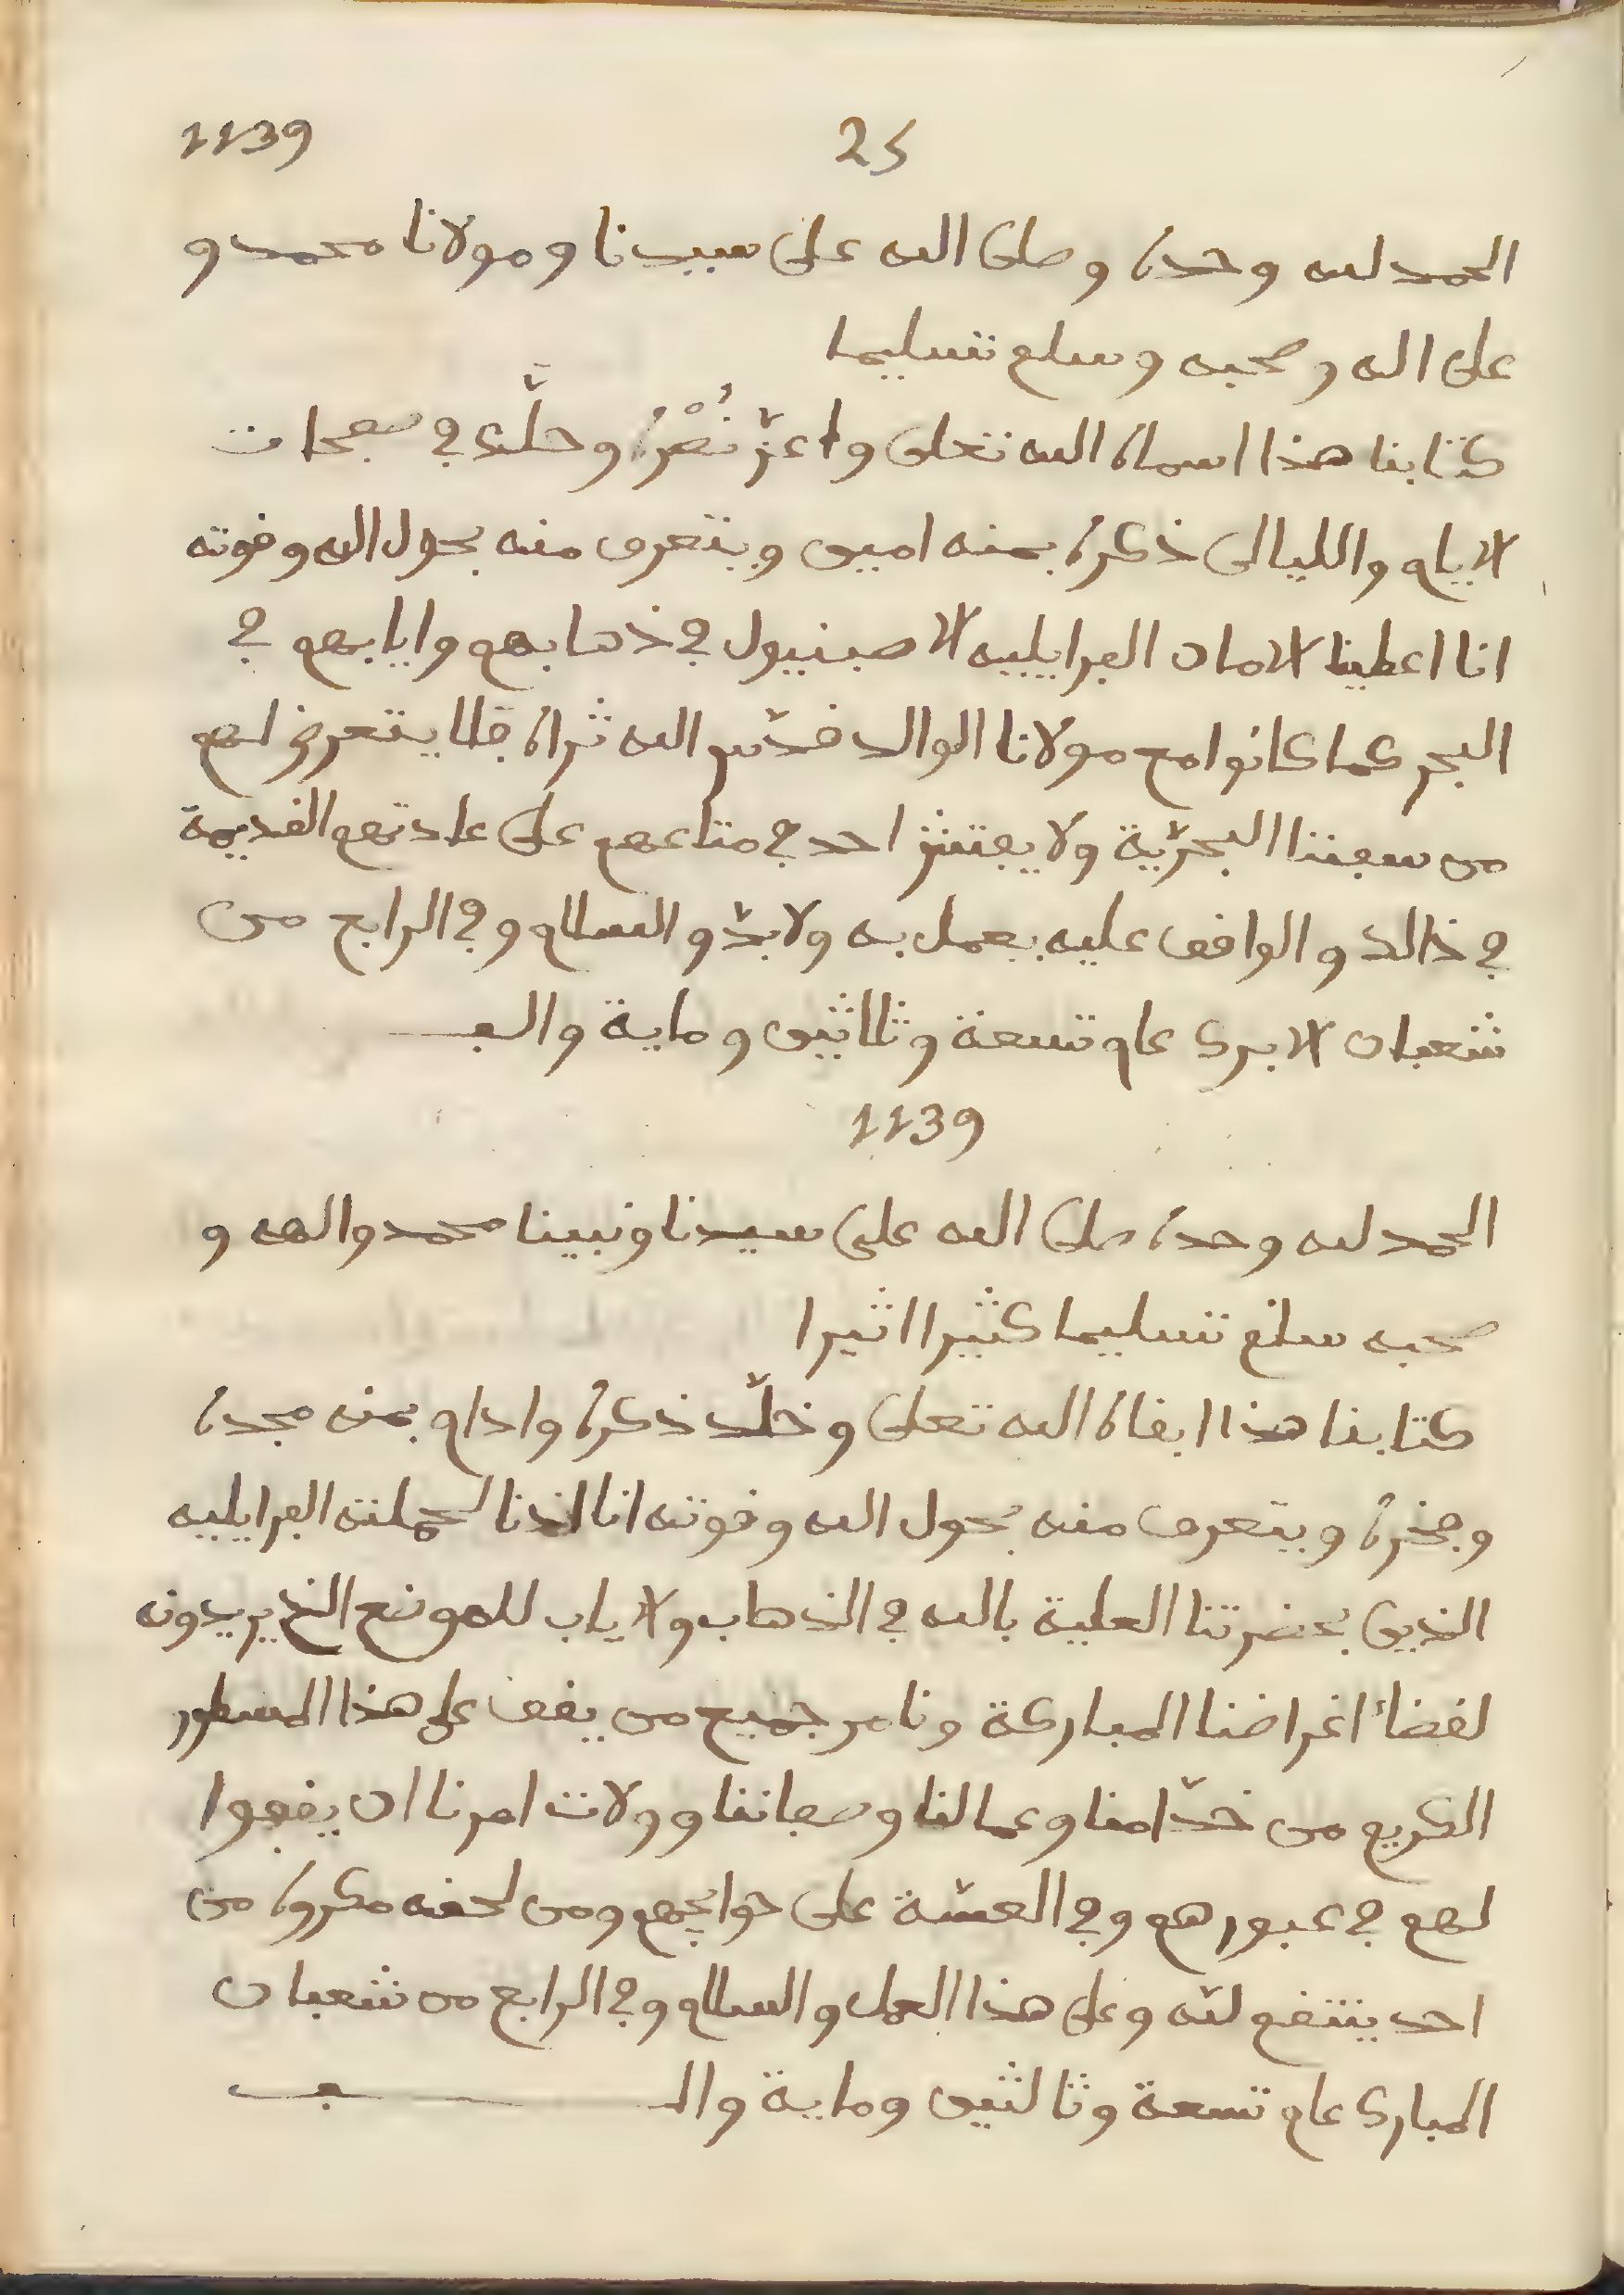 1139
25
الحمد لله وحده وصلى الله على سيدنا ومولانا محمد و
على اله وصحبه وسلم تسليما
كتابنا هذا اسماه الله تعلى واعز نصره وخلد في صفحات
الايام والليالى ذكره بمنه امين ويتعرف منه بحول الله وقوته
انا اعطينا الامان الفرايليه الاصبنيول في ذهابهم وايابهم في
البحر كما كانوا مع مولانا الوالد قدّس الله ثراه فلا يتعرض لهم
من سفننا البحريّة ولا يفتش احد في متاعهم على عادتهم القديمة
في ذالك والواقف عليه يعمل به ولا بدّ والسلام وفي الرابع من
شعبان الابرك عام تسعة وثلاثين وماية والف
1139
الحمد لله وحده صلى الله على سيدنا ونبينا محمد والهه و
صحبه سلم تسليما كثيرا اثيرا
كتابنا هذا ابقاه الله تعلى وخلّد ذكره وادام بمنه مجده
وفخره ويتعرف منه بحول الله وقوته انا اذنا لحملته الفرايليه
الذين بحضرتنا العلية بالله في الذهاب ولاياب للموضع الذ يريدونه
لقضائ اغراضنا المباركة ونامر جميع من يقف على هذا المسطور
الكريم من خدّامنا وعمالنا وصفاتنا وولات امرنا ان يقفوا
لهم في عبورهم وفي العسّة على حوايجهم ومن لحقه مكروه من
احد ينتقم لله وعلى هذا العمل والسلام وفي الرابع من شعبان
المبارك عام تسعة وثالثين وماية والف